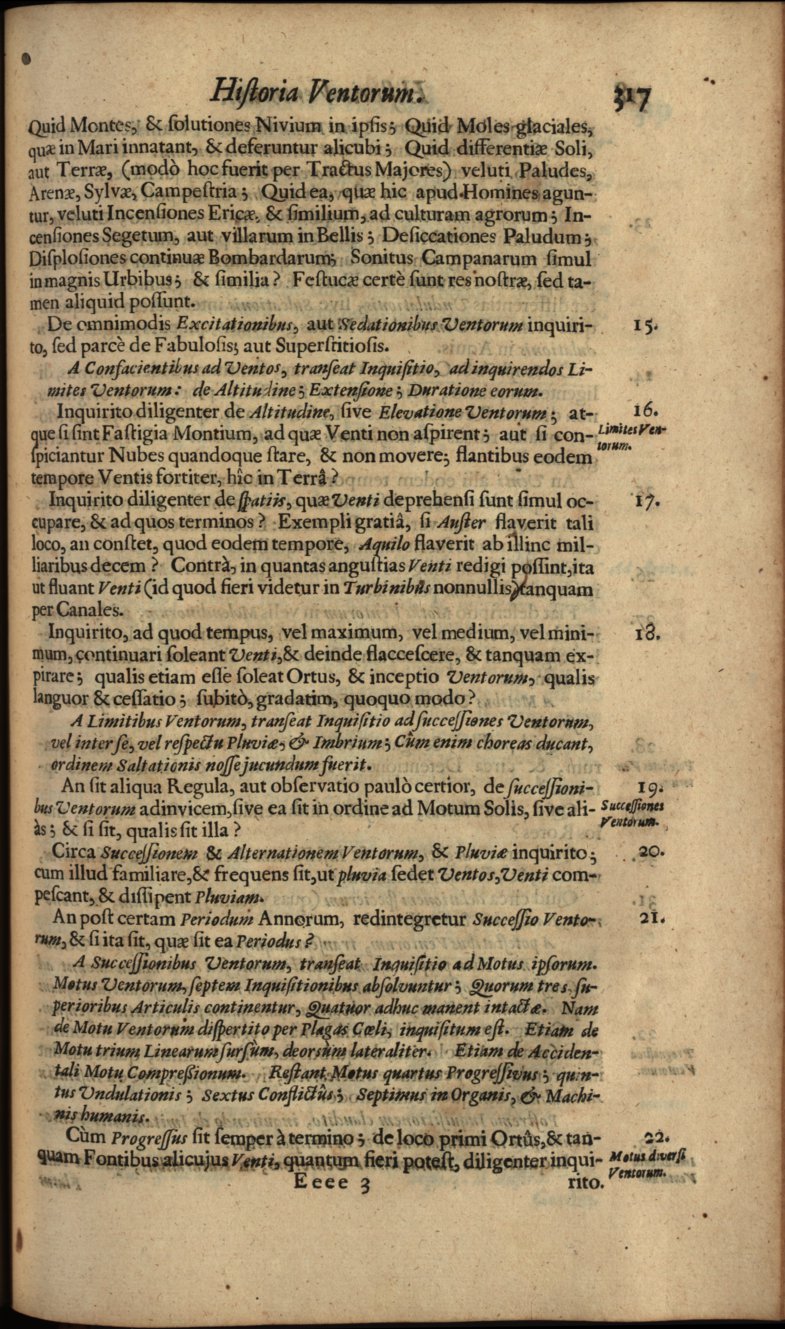 Historia Ventorum. 317
Quid Montes, & solutiones Nivium in ipsis; Quid Moles glaciales,
quæ in Mari innatant, & deferuntur alicubi; Quid differentiæ Soli,
aut Terræ, (modò hoc fuerit per Tractus Majores) veluti Paludes,
Arenæ, Sylvæ, Campestria; Quid ea, quæ hic apud Homines agun-
tur, veluti Incensiones Ericæ, & similium, ad culturam agrorum; In-
censiones Segetum, aut villarum in Bellis; Desiccationes Paludum;
Displosiones continuæ Bombardarum; Sonitus Campanarum simul
in magnis Urbibus; & similia? Festucæ certè sunt res nostræ, sed ta-
men aliquid possunt.
De omnimodis Excitationibus, aut Sedationibus Ventorum inquiri- 15.
to, sed parcè de Fabulosis; aut Superstitiosis.
A Confacientibus ad Ventos, transeat Inquisitio, ad inquirendos Li-
mites Ventorum: de Altitudine; Extensione; Duratione eorum.
Inquirito diligenter de Altitudine, sive Elevatione Ventorum; at- 16.
que si sint Fastigia Montium, ad quæ Venti non aspirent; aut si con- Limites Ven-
spiciantur Nubes quandoque stare, & non movere; flantibus eodem torum.
tempore Ventis fortiter, hîc in Terrâ?
Inquirito diligenter de spatiis, quæ Venti deprehensi sunt simul oc- 17.
cupare, & ad quos terminos? Exempli gratiâ, si Auster flaverit tali
loco, an constet, quod eodem tempore, Aquilo flaverit ab illinc mil-
liaribus decem? Contrà, in quantas angustias Venti redigi possint, ita
ut fluant Venti (id quod fieri videtur in Turbinibus nonnullis) tanquam
per Canales.
Inquirito, ad quod tempus, vel maximum, vel medium, vel mini- 18.
mum, continuari soleant Venti, & deinde flaccescere, & tanquam ex-
pirare; qualis etiam esse soleat Ortus, & inceptio Ventorum, qualis
languor & cessatio; subitò, gradatim, quoquo modo?
A Limitibus Ventorum, transeat Inquisitio ad successiones Ventorum,
vel inter se, vel respectu Pluviæ, & Imbrium; Cùm enim choreas ducant,
ordinem Saltationis nosse jucundum fuerit.
An sit aliqua Regula, aut observatio paulò certior, de successioni- 19.
bus Ventorum adinvicem, sive ea sit in ordine ad Motum Solis, sive ali- Successiones
às; & si sit, qualis sit illa? Ventorum.
Circa Successionem & Alternationem Ventorum, & Pluviæ inquirito; 20.
cum illud familiare, & frequens sit, ut pluvia sedet Ventos, Venti com-
pescant, & dissipent Pluviam.
An post certam Periodum Annorum, redintegretur Successio Vento- 21.
rum, & si ita sit, quæ sit ea Periodus?
A Successionibus Ventorum, transeat Inquisitio ad Motus ipsorum.
Motus Ventorum, septem Inquisitionibus absolvuntur; Quorum tres su-
perioribus Articulis continentur, Quatuor adhuc manent intactæ. Nam
de Motu Ventorum dispertito per Plagas Cœli, inquisitum est. Etiam de
Motu trium Linearum sursùm, deorsum lateraliter. Etiam de Acciden-
tali Motu Compressionum. Restant Motus quartus Progressivus; quin-
tus Undulationis; Sextus Conflictûs; Septimus in Organis, & Machi-
nis humanis.
Cùm Progressus sit semper à termino; de loco primi Ortûs, & tan- 22.
quam Fontibus alicujus Venti, quantum fieri potest, diligenter inqui- Motus diversi
Eeee 3 rito. Ventorum.